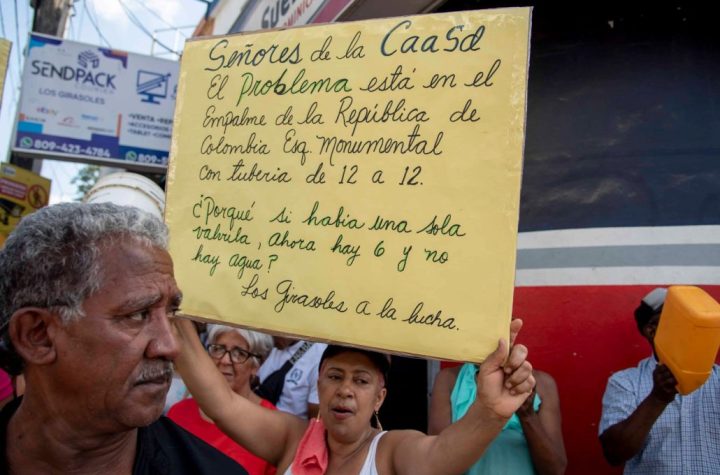 SENDPACK
LOS GIRASOLES
ebay
• VENTA • REP
• ACCESORIOS
• TABLET • CON
809-423-4784
809-5
Señores de la CaaSd
El Problema está en el
Empalme de la República de
Colombia Esq. Monumental
con tuberia de 12 a 12.
¿Porqué si habia una sola
valvula, ahora hay 6 y no
hay agua?
Los Girasoles a la lucha.